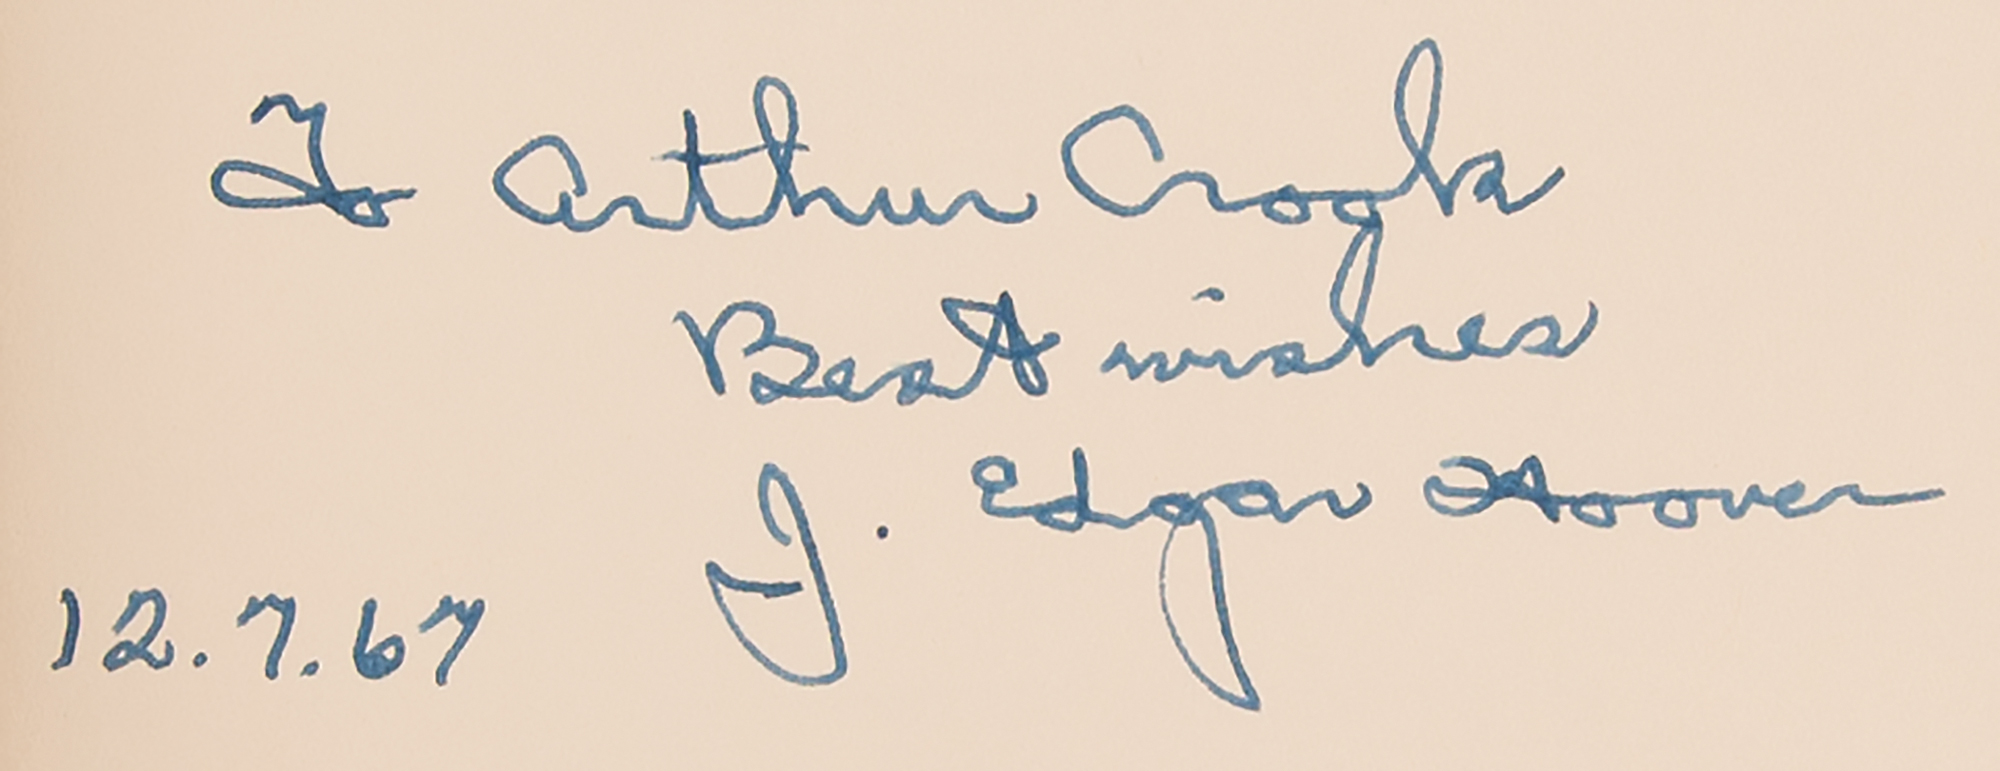 To Arthur Crook
Best wishes
J. Edgar Hoover
12.7.67